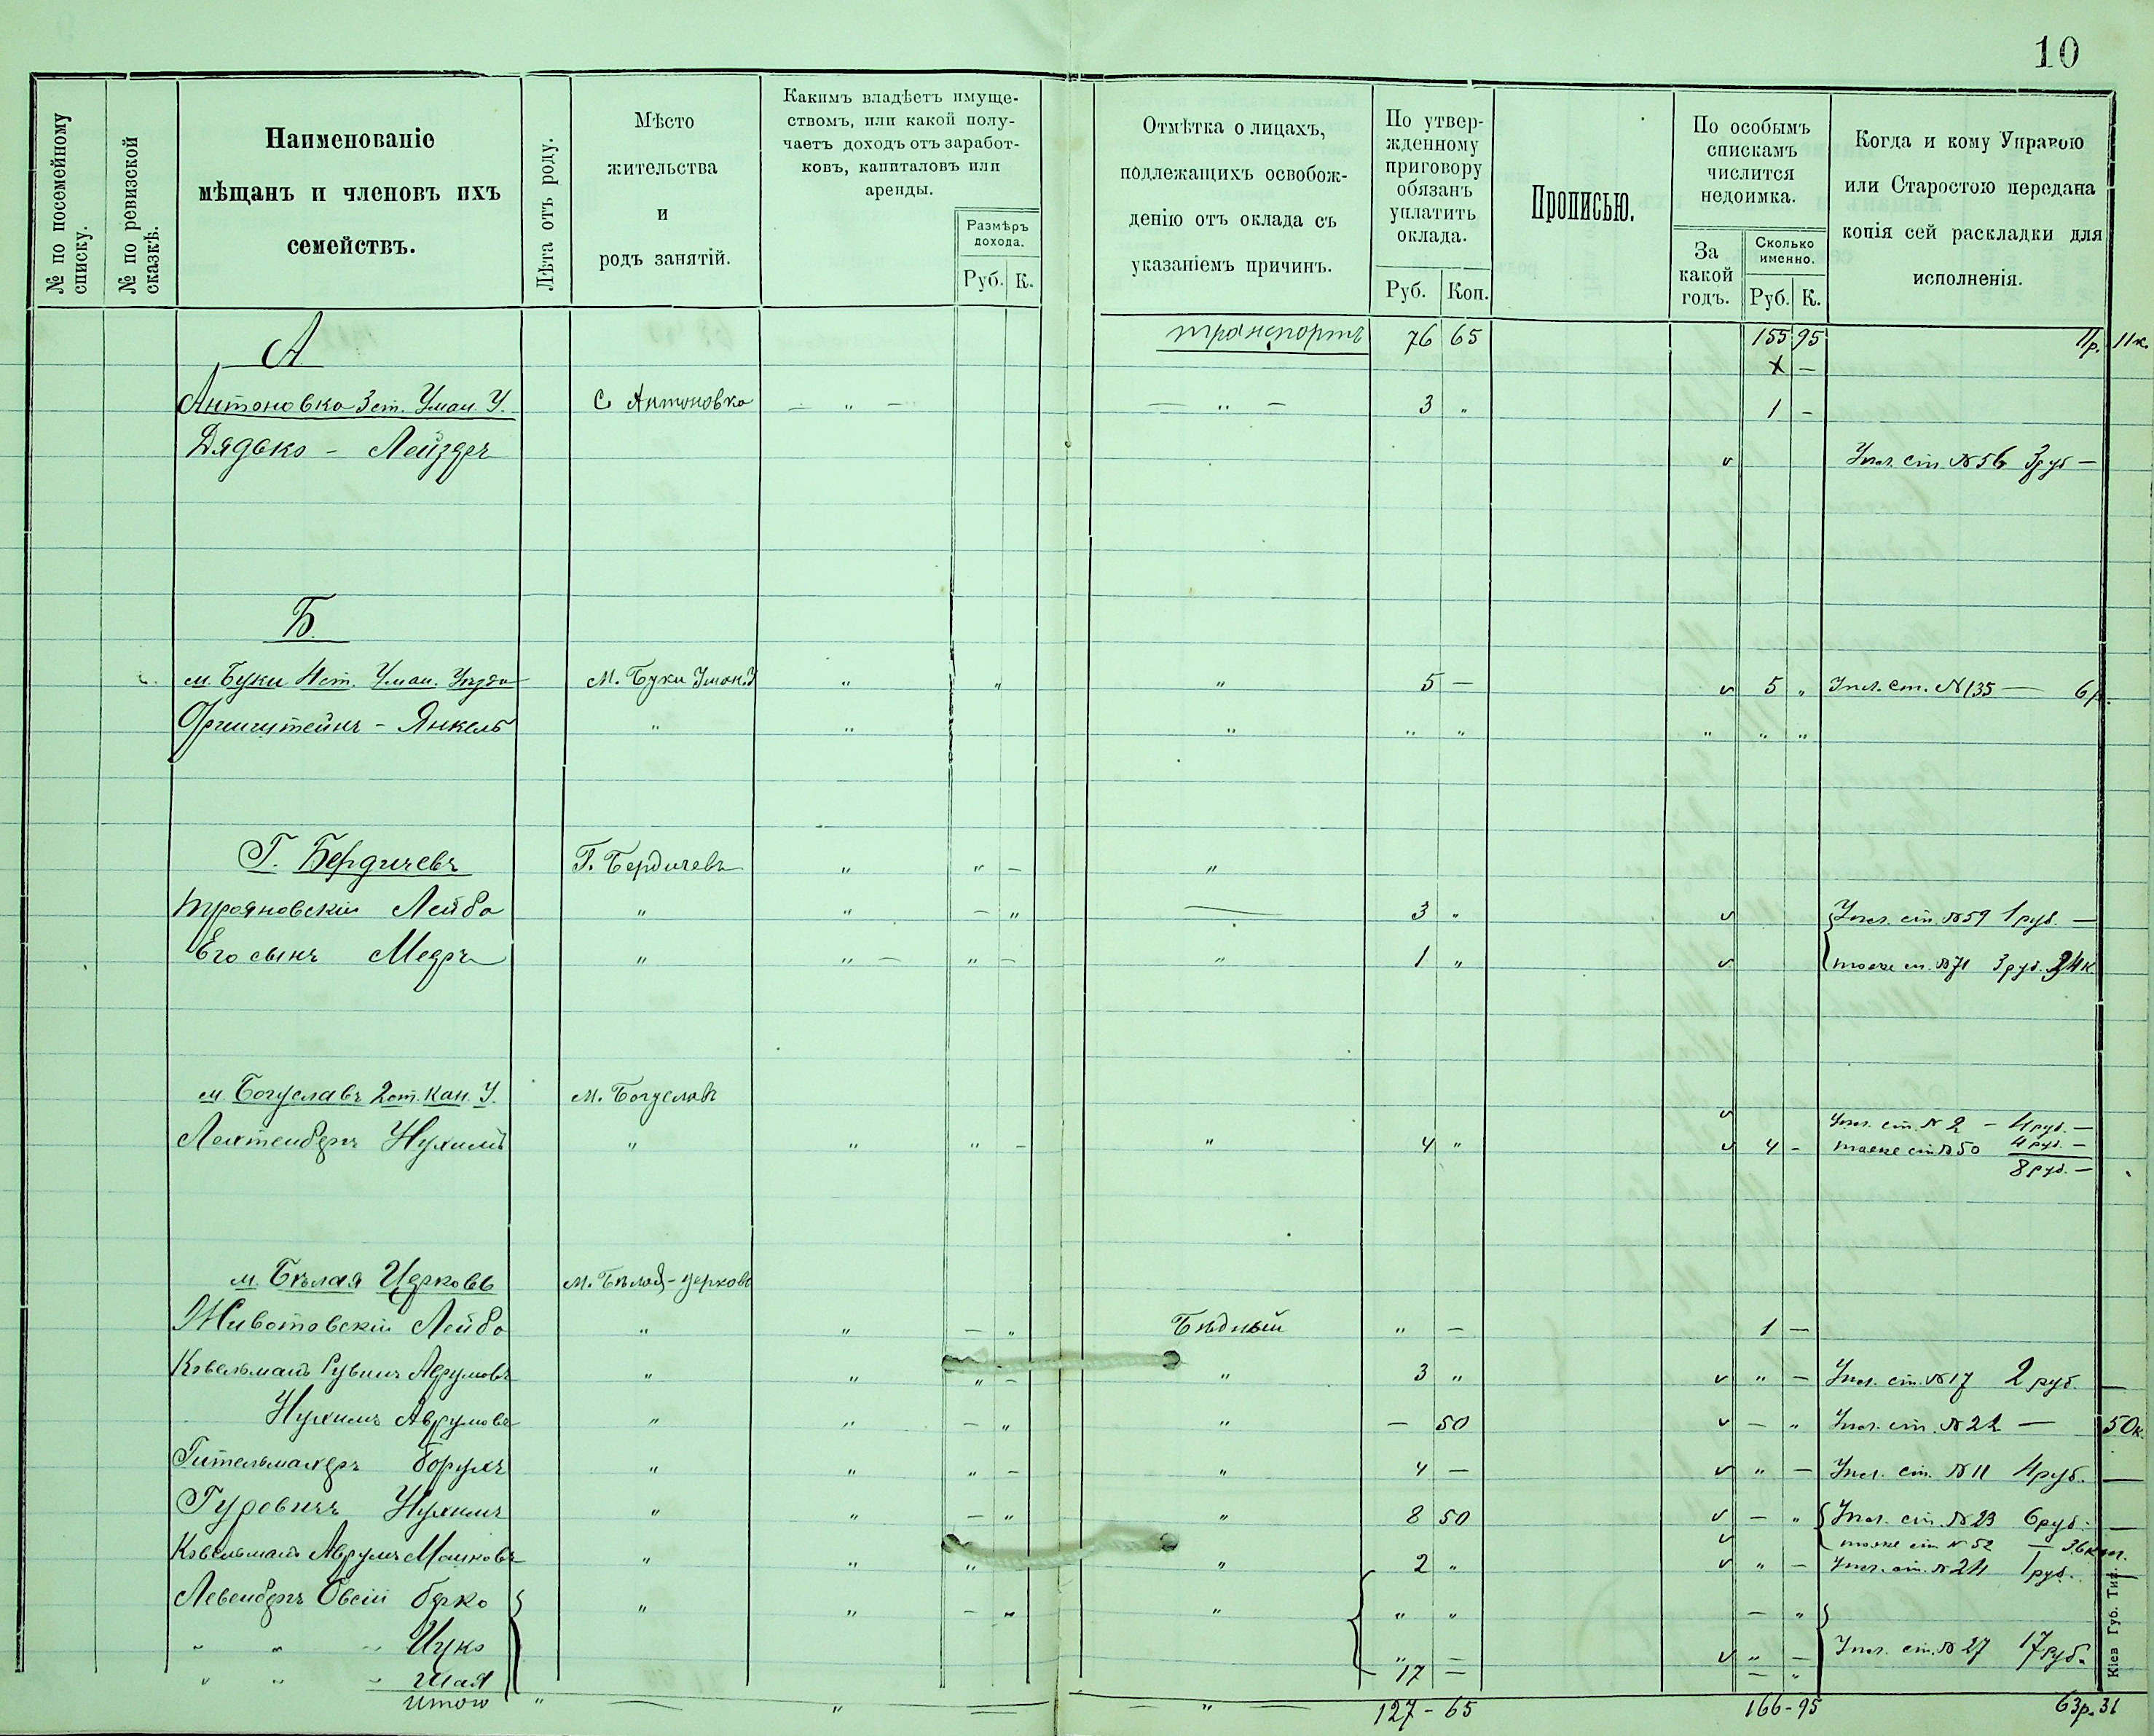 10
№ по посемейному списку.
№ по ревизской сказкѣ.
Наименованіе
мѣщанъ и членовъ ихъ
семействъ.
Лѣта отъ роду.
Мѣсто
жительства
и
родъ занятій.
Какимъ владѣетъ имуще-
ствомъ, или какой полу-
чаетъ доходъ отъ заработ-
ковъ, капиталовъ или
аренды.
Размѣръ
дохода.
Руб. К.
Отмѣтка о лицахъ,
подлежащихъ освобож-
денію отъ оклада съ
указаніемъ причинъ.
По утвер-
жденному
приговору
обязанъ
уплатить
оклада.
Руб. Коп.
Прописью.
По особымъ
спискамъ
числится
недоимка.
За
какой
годъ.
Сколько
именно.
Руб. К.
Когда и кому Управою
или Старостою передана
копія сей раскладки для
исполненія.
А транспортъ 76 65 155 95 11р. 11к.
Антоновка 3 ст. Уман. У. С Антоновка — „ — — „ — 3 „ 1 -
Дядько - Лейзеръ v Упл. ст. №56 3руб —
Б
м. Буки 4 ст. Уман. Уѣзда М. Буки Уман. У „ „ „ 5 — v 5 „ Упл. ст. №135 — 6р.
- Янкель „ „ „ „ „ „ „ „
Г. Бердичевъ Г. Бердичевъ „ „ — „
Трояновскій Лейба „ „ — „ — 3 „ v Упл. ст. №59 1 руб. —
Его сынъ „ „ — „ — „ 1 „ v тоже ст. №71 3 руб. 34к
м. Богуславъ 2 ст. Кан. У. м. Богуславъ v Упл. ст. №2 - 4руб. —
Лехтенберъ Нухимъ „ „ „ - „ 4 „ v 4 - тоже ст №50 4руб. —
8руб. —
м. Бѣлая Церковь м. Бѣлая-церковь
Животовскій Лейба „ „ — „ Бѣдный „ — 1 —
Ковельманъ Рувинъ Аврумовъ „ „ „ — „ 3 „ v „ — Упл. ст. №17 2 руб. —
Нухимъ Аврумовъ „ „ — „ „ — 50 v — „ Упл. ст. №22 — 50к.
Гительмахеръ Борухъ „ „ „ — „ 4 — v „ — Упл. ст. №11 4руб. —
Гуровичъ Нухимъ „ „ — „ „ 8 50 v — „ Упл. ст. №23 6руб. —
v тоже ст №52 — 36коп.
Ковельманъ Аврумъ Мошковъ „ „ „ „ 2 „ v „ — Упл. ст. №24 1руб.
Левенберъ Овсій Берко „ „ — „ „ „ „ — „
„ „ „ Ицко „ — v „ — Упл. ст. №27 17руб.
„ „ „ Шая 17 — — „
Итого „ — „ — — „ — 127 - 65 166 - 95 63р. 31
Кіев Губ. Тип.